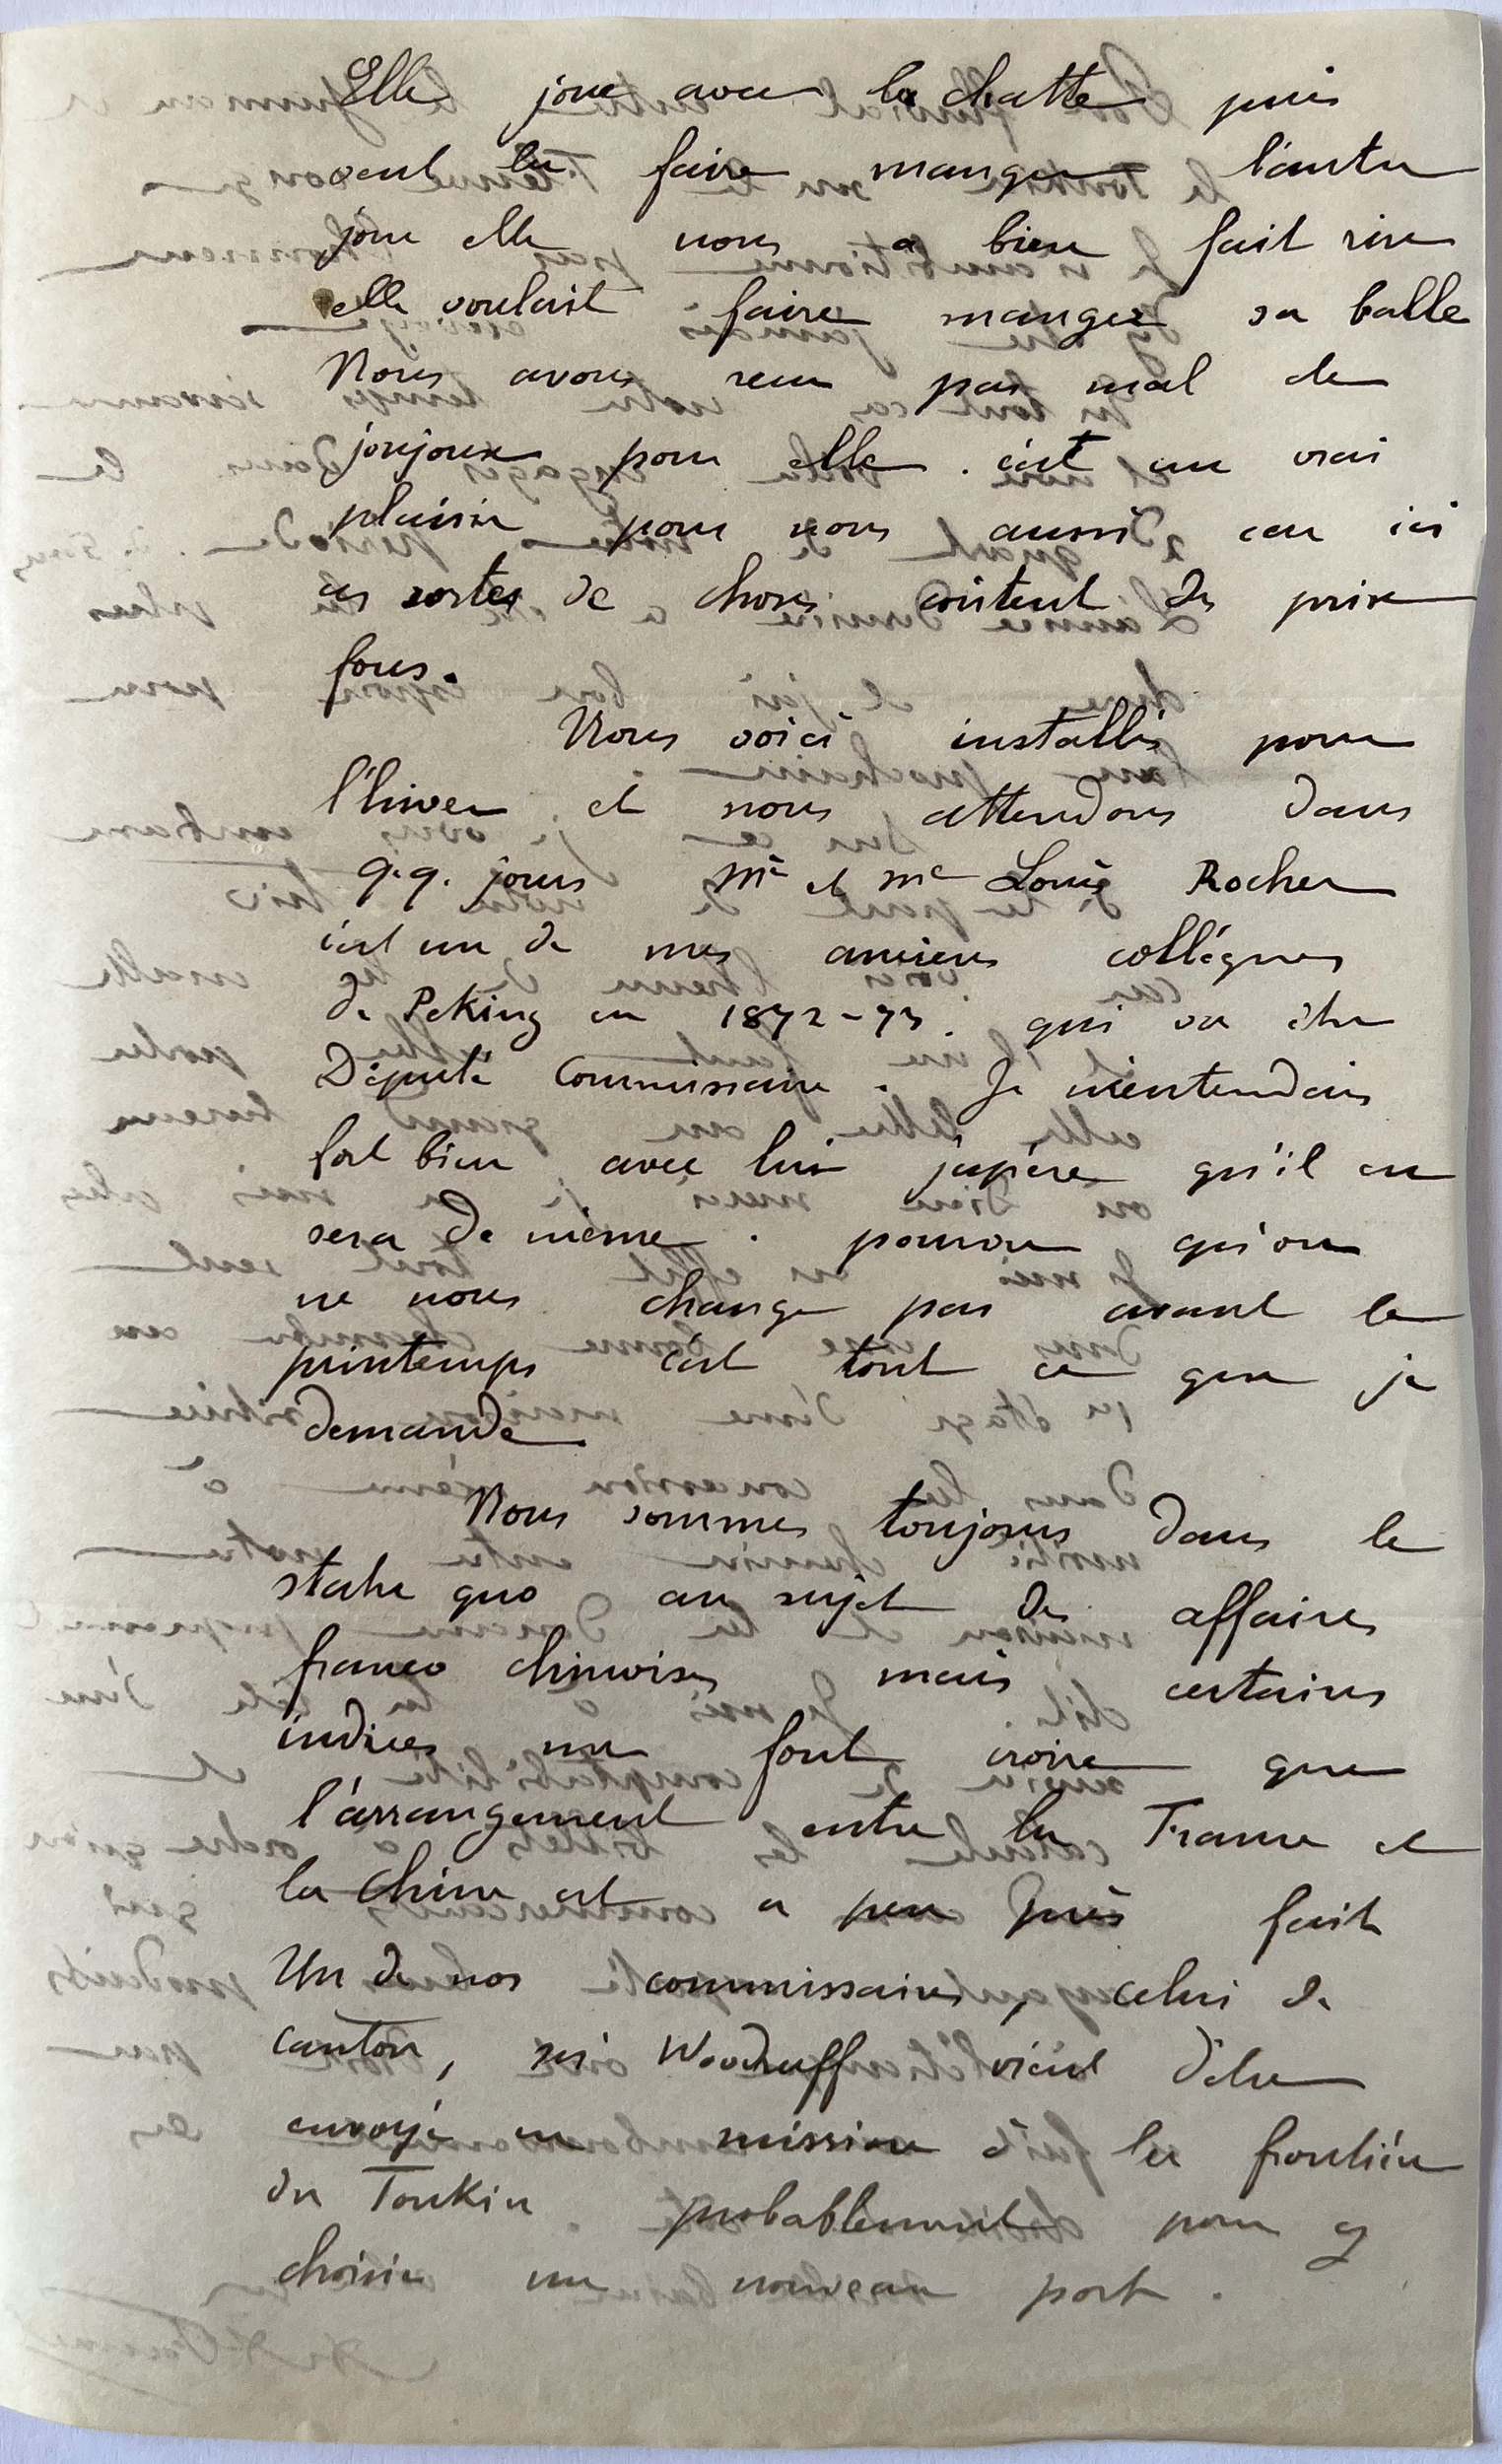 Elle joue avec la chatte puis
veut la faire manger l'autre
jour elle nous a bien fait rire
elle voulait faire manger sa balle
Nous avons reçu pas mal de
joujoux pour elle. c'est un vrai
plaisir pour nous aussi car ici
ces sortes de choses coûtent des prix
fous.
Nous voici installés pour
l'hiver et nous attendons dans
q.q. jours Mr et Me Louis Rocher
c'est un de mes anciens collégues
de Peking en 1872-73. qui va être
Député Commissaire. Je m'entendais
fort bien avec lui j'espère qu'il en
sera de même. pourvu qu'on
ne nous change pas avant le
printemps c'est tout ce que je
demande
Nous sommes toujours dans le
statu quo au sujet des affaires
franco chinoises mais certains
indices me font croire que
l'arrangement entre la France et
la Chine est a peu près fait
Un de nos commissaires, celui de
Canton, Woodruff vient d'être
envoyé en mission à la frontière
du Tonkin probablement pour y
choisir un nouveau port.